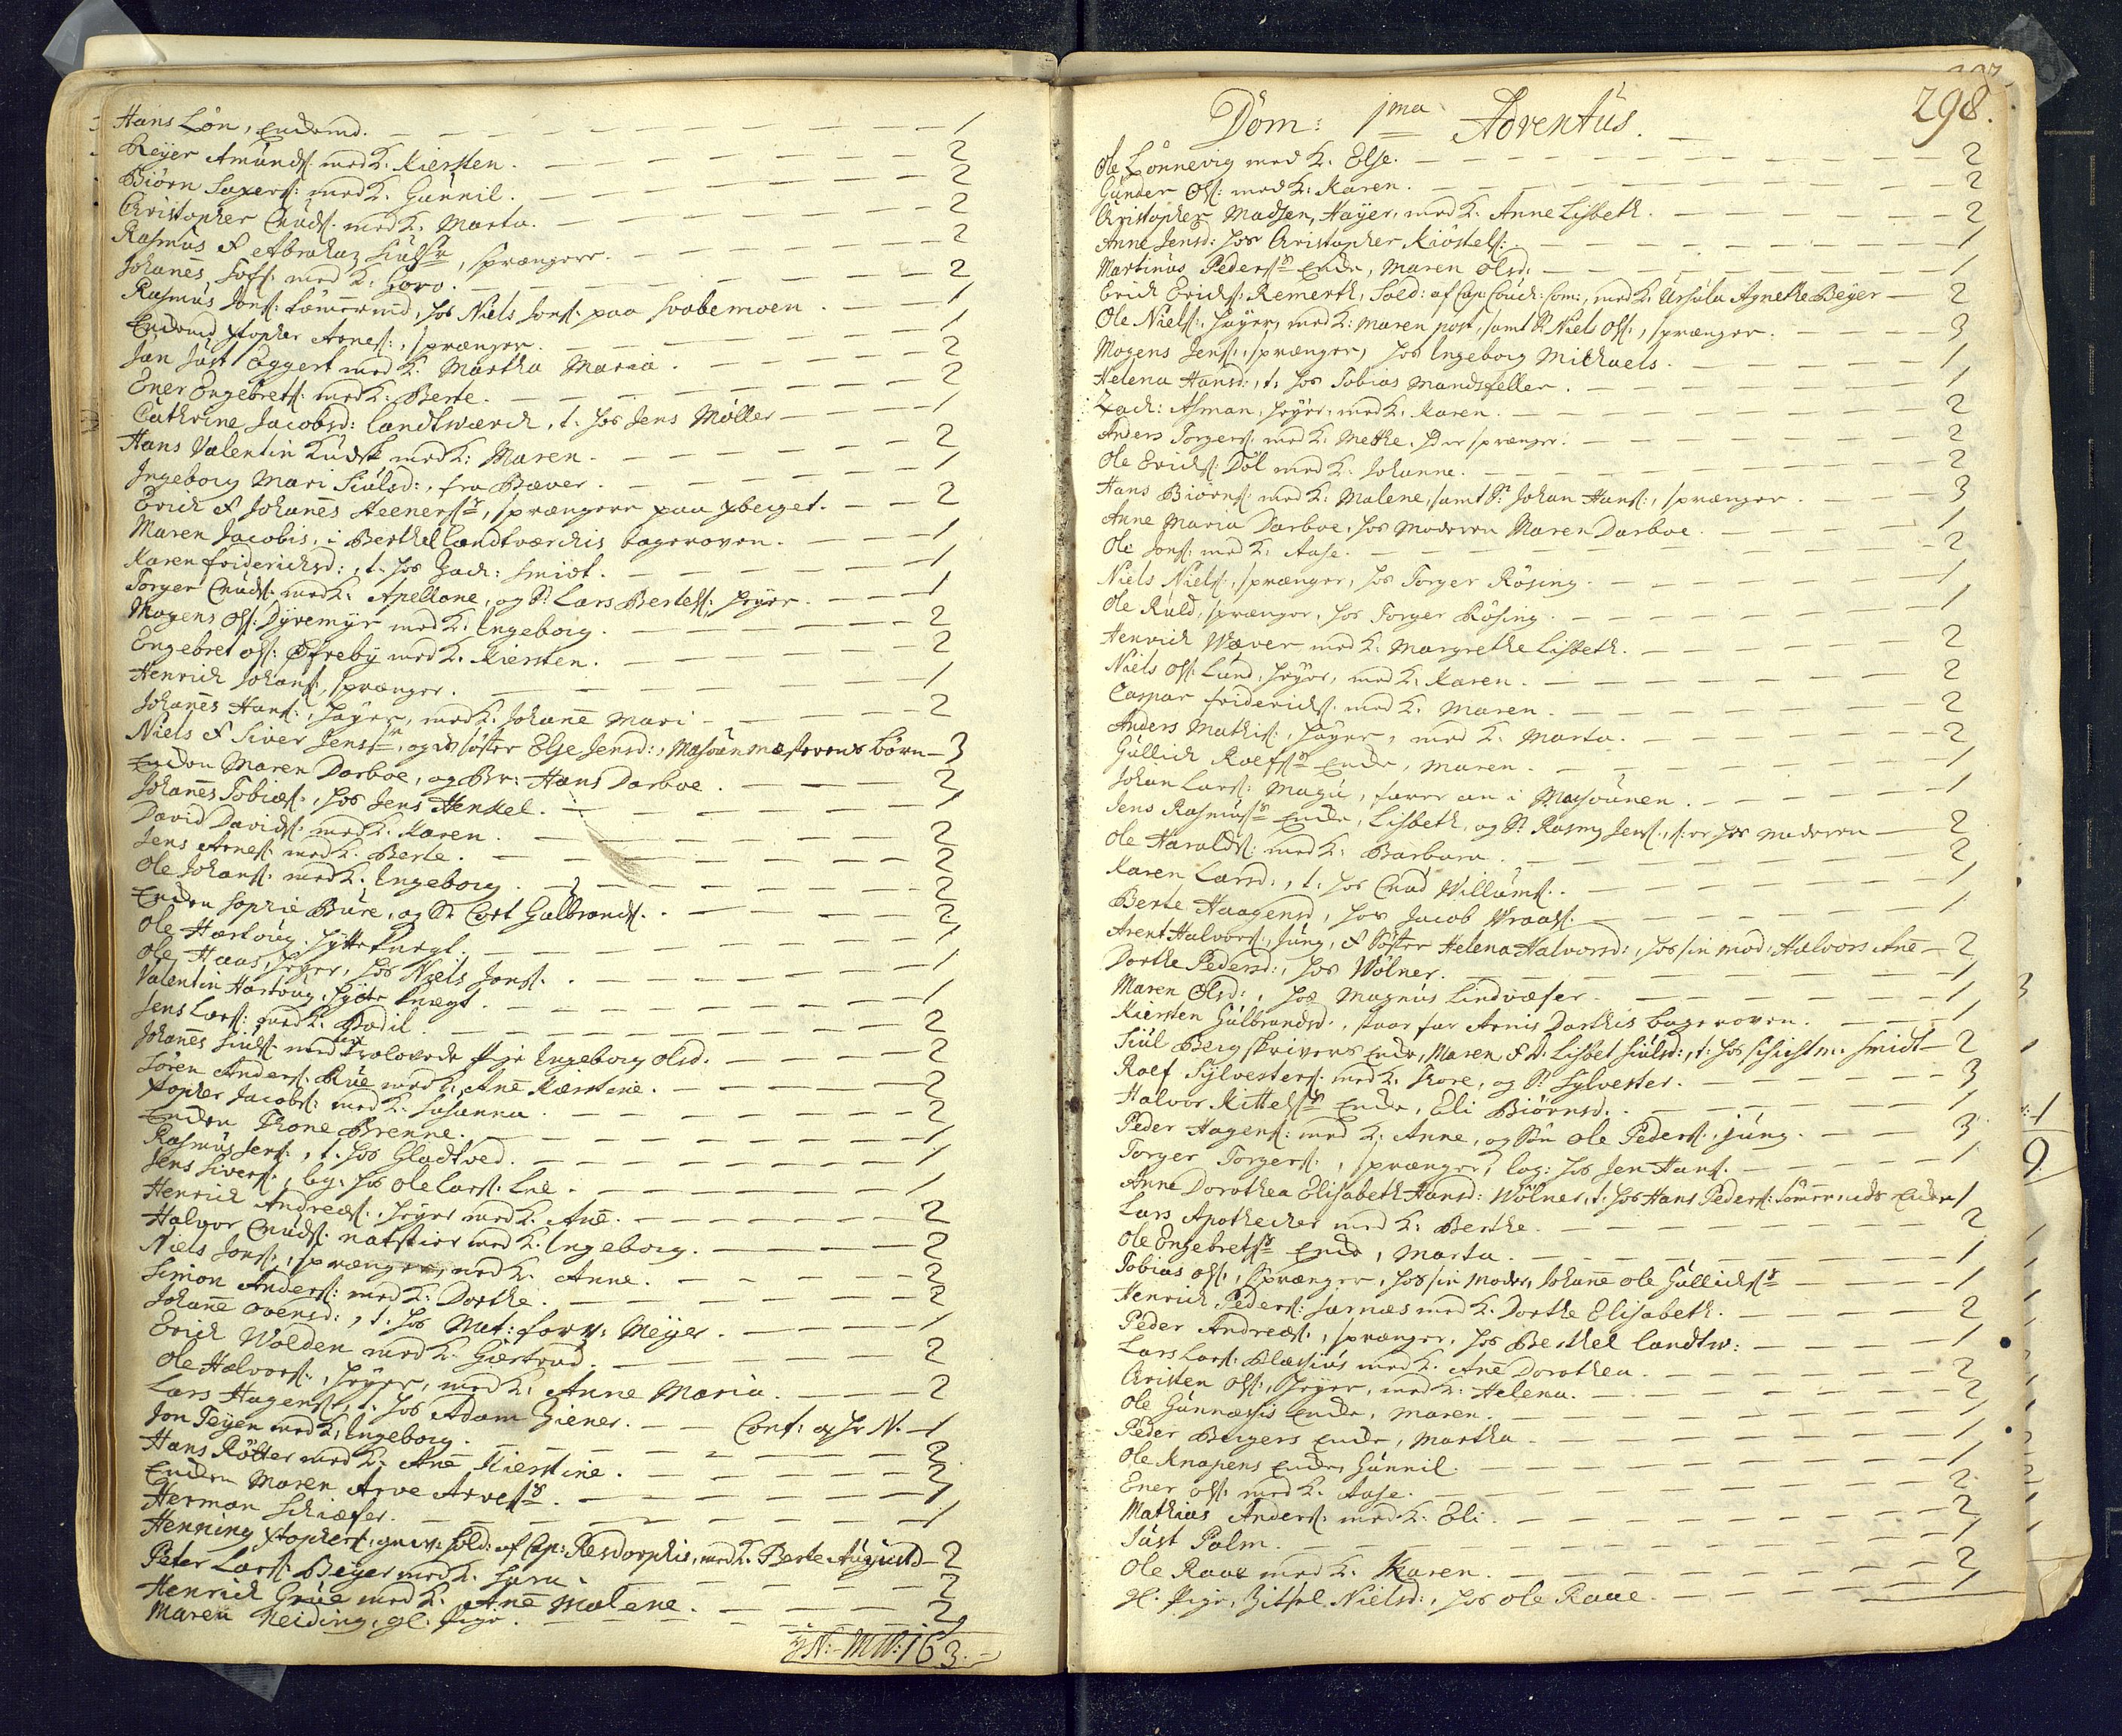 Hans Lön, Enckemd. 1
Reÿer Amunds. med K. Kiersten. 2
Biörn Saxers: med K. Gunnil. 2
Christopher Cnuds. med K. Marta. 2
Rasmus & Abraham Siuls., sprængere. 2
Johanes Jofs. med K. Goro. 2
Rasmus Jons: tömermd, hos Niels Jons. paa Svabemoen. 1
Enckemd Xtopher Arnes:, sprænger. 1
Jan Just Eggert med K. Martha Maria. 2
Ener Engebrets. med K. Berte. 2
Cathrine Jacobsd: Landtwærch, t. hos Jens Möller 1
Hans Valentin Kudsk med K: Maren. 2
Ingeborg Mari Siulsd:, fra Bæver. 1
Erich & Johanes Steeners., sprængere paa xberget. 2
Maren Jacobis, i Berthel Landtværchis bagerovn. 1
Karen Friderichsd:, t. hos Zach: Smidt. 1
Torger Cnuds. med K. Apellone, og S. Lars Bertels., heÿer.
Mogens Ols. Dÿremÿr med K. Ingeborg. 2
Engebret Ols: Öfrebÿ med K. Kiersten. 2
Henrich Johans., sprænger. 1
Johanes Hans:, heÿer, med K. Johane Mari 2
Niels & Siver Jens., og ds söster Else Jensd:, Masovnmesterens börn 3
Encken Maren Darboe, og Br: Hans Darboe. 2
Johanes Tobias., hos Jens Henkel. 1
David Davids. med K. Karen. 2
Jens Arnes. med K. Berte. 2
Ole Johans. med K. Ingeborg. 2
Encken Sophie Bure, og S. Cort Gulbrands. 2
Ole Hartoug, hÿtteknegt. 1
Ole Haas, heÿer, hos Niels Jons. 1
Valentin Hartoug, hÿtteknegt. 1
Jens Lars: med K. Bodil. 2
Johanes Siuls. med trolovede pige Ingeborg Olsd. 2
Sören Anders. Rue med K. Ane Kierstine. 2
Xtopher Jacobs: med K. Susanna. 2
Encken Thone Brenne. 1
Rasmus Jens:, t. hos Gladtved. 1
Jens Sivers., log. hos Ole Lars. Lie. 1
Henrich Andreæs., heÿer med K. Ane. 2
Halvor Cnuds. natstier med K. Ingeborg. 2
Niels Jons., sprænger, med K. Anne. 2
Simon Anders: med K. Dorthe. 2
Johane Ovensd:, t. hos Mat: forv: Meÿer. 1
Erich Wolden med K. Giertrud. 2
Ole Halvors., heÿer, med K. Anne Maria. 2
Lars Hagens., t. hos Adam Ziener. Conf: af Hr N. 1
Jon Teÿen med K. Ingeborg. 2
Hans Rötter med K. Ane Kierstine. 2
Encken Maren Arve Arves. 1
Herman Schiæfer. 1
Henning Xtophers., gev: Sold: af Cap: Resdorphis, med K. Berte Augustd 2
Peter Lars. Beÿer med K. Sara. 2
Henrich Grüe med K. Ane Malene. 2
Maren Neiding, gl. Pige. 1
163.
298.
Dom: 1ma Adventus.
Ole Lönnevig med K. Else. 2
Gunder Ols: med K: Karen. 2
Christopher Madsen, Haÿer, med K. Anne Lisbeth. 2
Anne Jensd: hos Christopher Kiöstels: 1
Martinus Peders. Encke, Maren Olsd. 1
Erich Erichs. Remerth, Sold: af Cap: Couch: Com:, med K. Ursula Agnethe Beÿer 2
Ole Niels:, heÿer, med K: Maren post, samt S. Niels Ols:, sprænger. 3
Mogens Jens:, sprænger, hos Ingeborg Michaels. 1
Helena Hansd:, t. hos Tobias Mandsfeller. 1
Zach: Asman, heÿer, med K. Karen. 2
Anders Torgers. med K. Mette. Der sprænger. 2
Ole Erichs: Döl med K. Johanne. 2
Hans Biörns. med K: Malene, samt S. Johan Hans:, sprænger. 3
Anne Maria Darboe, hos Moderen Maren Darboe. 1
Ole Jons: med K. Aase. 2
Niels Niels:, sprænger, hos Torger Rösing. 1
Ole Ruld, sprænger, hos Torger Rösing. 1
Henrich Wæver med K. Margrethe Lisbeth. 2
Niels Ols. Lund, heÿer, med K. Karen. 2
Caspar Friderichs. med K. Maren. 2
Anders Mathis:, heÿer, med K. Marta. 2
Gullich Roefs. Encke, Maren. 1
Johan Lars: Magu, farer an i Masovnen. 1
Jens Rasmus. Encke, Lisbeth, og S. Rasmus Jens., s: er hos moderen 2
Ole Haralds: med K: Barbara. 2
Karen Larsd:, t. hos Cnud Willums. 1
Berte Haagensd, hos Jacob Wraas. 1
Arent Halvors., jung, & söster Helena Halvorsd:, hos sin mod: Halvors Ane 2
Dorthe Pedersd:, hos Wölner. 1
Maren Olsd:, hos Magnus Lindvæfer. 1
Kiersten Gulbrandsd., svar far Arnis Dorthis bagerovn. 1
Siul Bergskrivers Encke, Maren, & D. Lisbet Siulsd:, t. hos Schichtm. Smidt 2
Roef Sÿlvesters. med K. Thore, og S. Sylvester. 3
Halvor Kittels. Encke, Eli Biörnsd. 1
Peder Hagens: med K. Anne, og Sön Ole Peders., jung. 3
Torger Torgers:, sprænger, log: hos Jen Hans. 1
Anne Dorothea Elisabeth Hansd: Wölner, t. hos Hans Peders: tömermds Encke 1
Lars Apothecher med K: Berthe. 2
Ole Engebrets. Encke, Marta. 1
Tobias Ols., sprænger, hos sin Moder, Johane Ole Gullichs. 1
Henrich Peders: Jarnæs med K. Dorthe Elisabeth. 2
Peder Andreæs., sprænger, hos Berthel Landtw: 1
Lars Lars: Blæssius med K. Ane Dorothea. 2
Christen Ols:, heÿer, med K: Helena. 2
Ole Gunnæssis Encke, Maren. 1
Peder Bergers Encke, Martha 1
Ole Knapens Encke, Gunnil. 1
Ener Ols. med K. Aase. 2
Mathias Anders. med K. Eli. 2
Just Palm. 1
Ole Raae med K. Karen. 2
gl. Pige, Zitsel Nielsd:, hos Ole Raae. 1